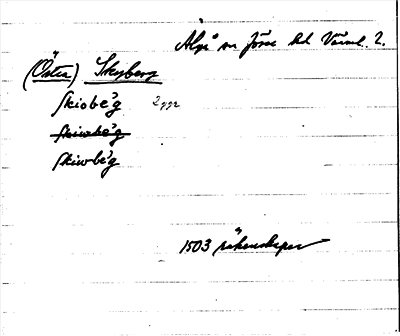 Älgå sn Jösse hd Värml. 2.
(Östra) Skyberg
skiobe'g 2 ggr
skiwbe'g
skiwbe'g
1503 räkenskaper